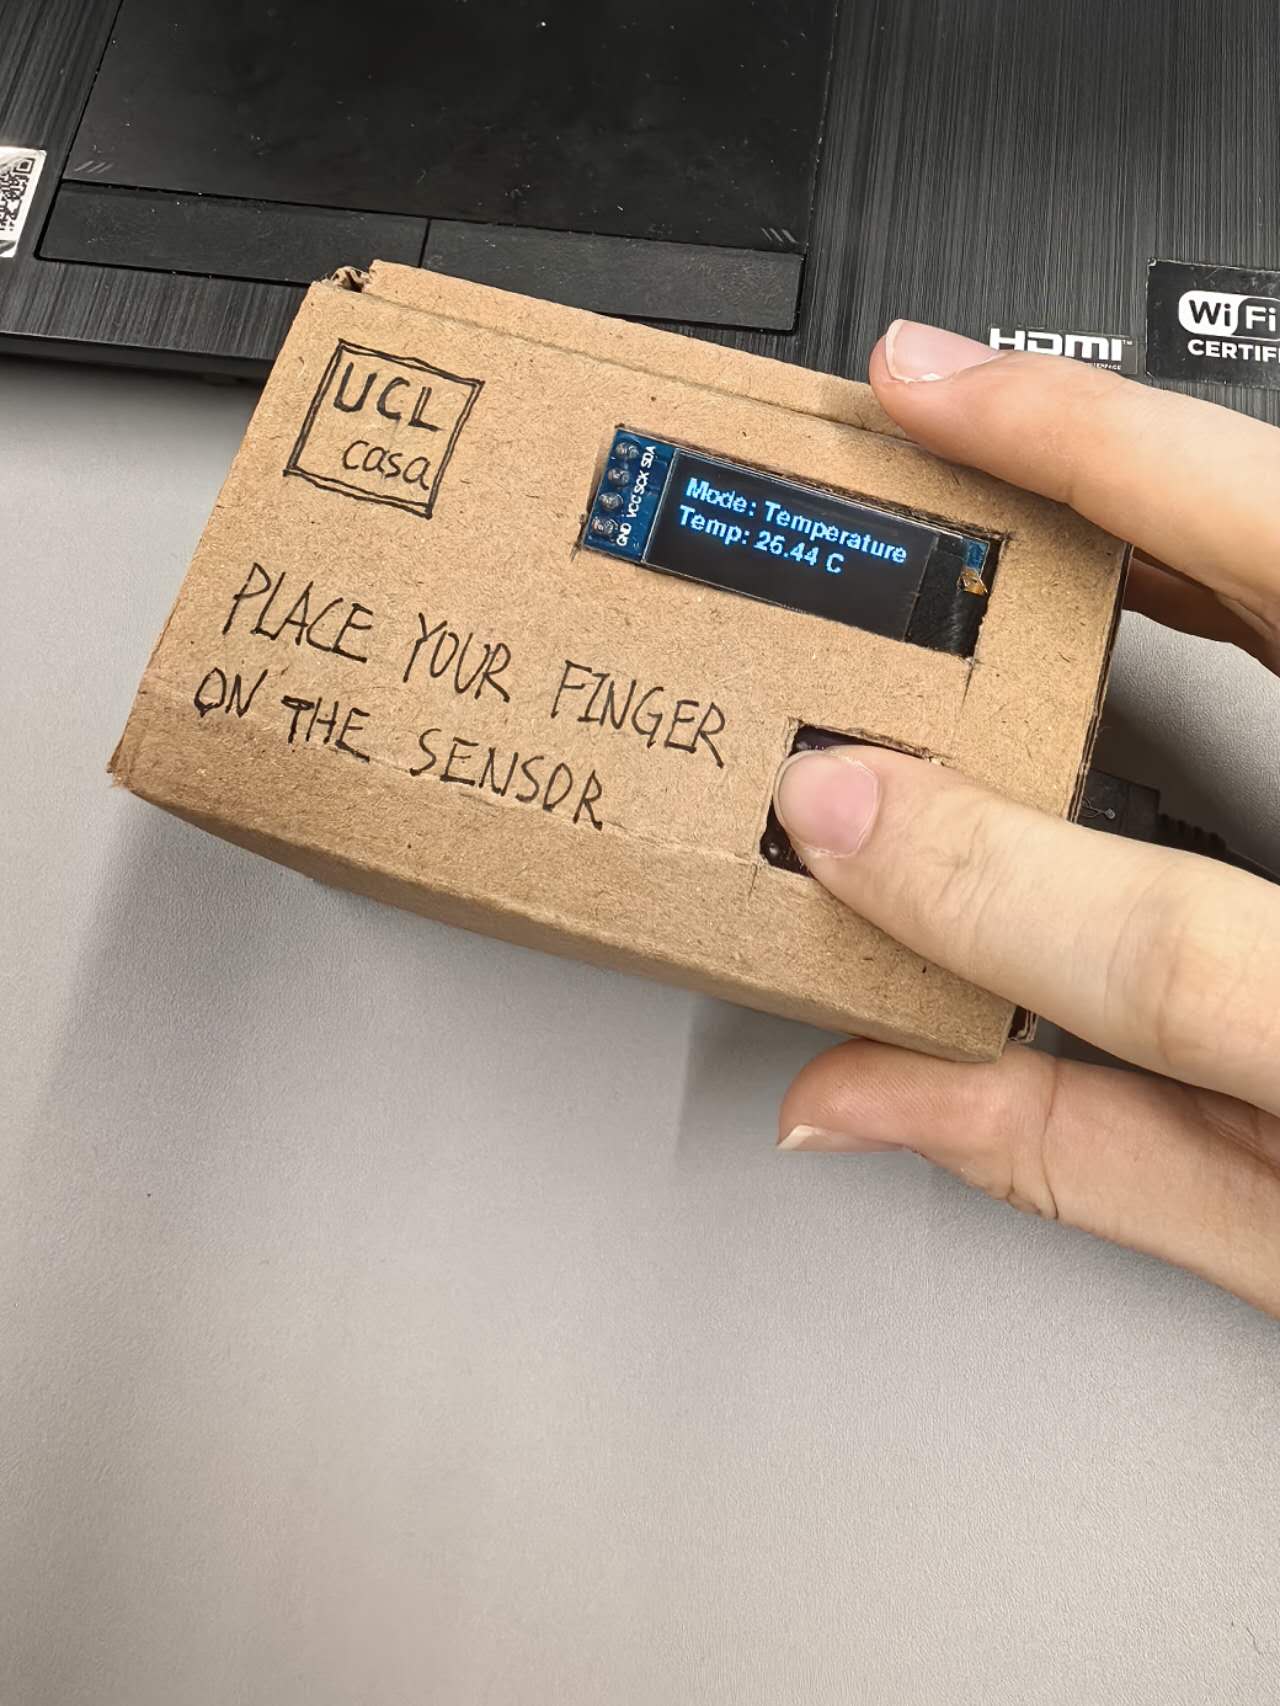 HDMI
Wi Fi
UCL
casa
GND VCC SCK SDA
Mode: Temperature
Temp: 26.44 C
PLACE YOUR FINGER
ON THE SENSOR